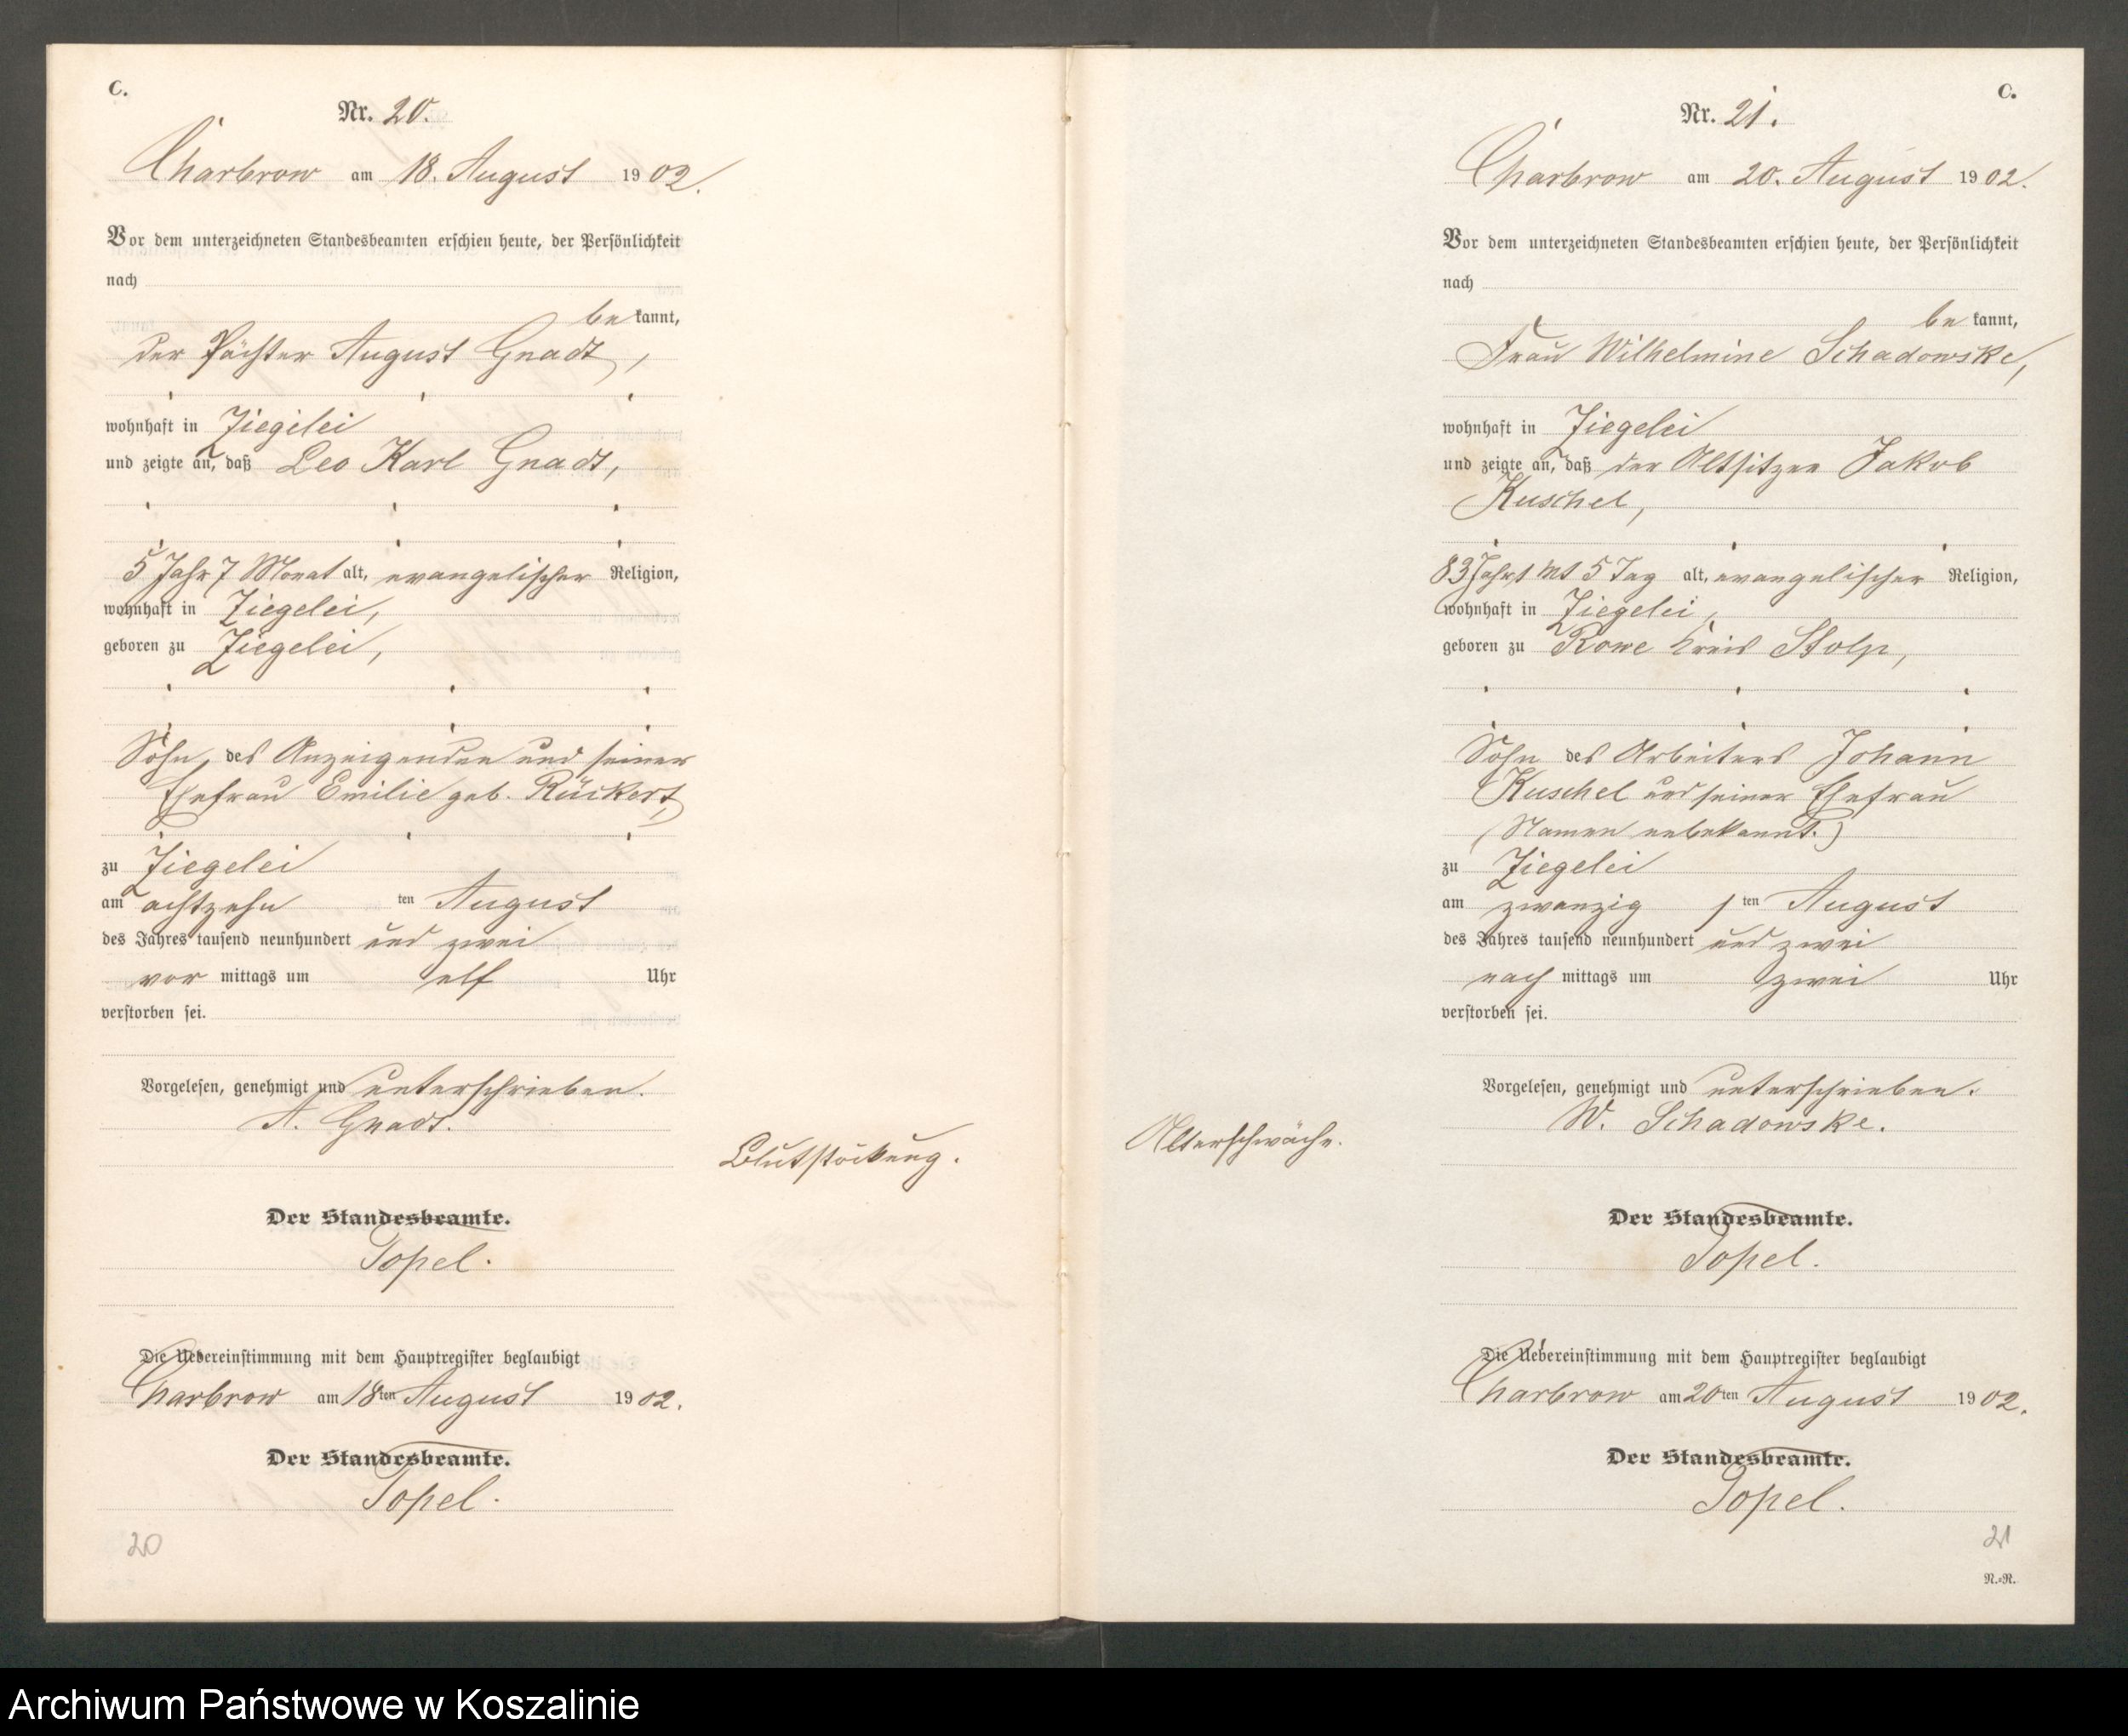 C.
Nr. 20.
Charbrow am 18. August 1902.
Vor dem unterzeichneten Standesbeamten erschien heute, der Persönlichkeit
nach
be kannt,
der Pächter August Gnadt,
wohnhaft in Ziegelei
und zeigte an, daß Leo Karl Gnadt,
5 Jahr 7 Monat alt, evangelischer Religion,
wohnhaft in Ziegelei,
geboren zu Ziegelei,
Sohn des Anzeigenden und seiner
Ehefrau Emilie geb. Rückert,
zu Ziegelei
am achtzehn ten August
des Jahres tausend neunhundert und zwei
vor mittags um elf Uhr
verstorben sei.
Vorgelesen, genehmigt und unterschrieben.
A. Gnadt.
Blutstockung.
Der Standesbeamte.
Topel.
Die Uebereinstimmung mit dem Hauptregister beglaubigt
Charbrow am 18ten August 1902.
Der Standesbeamte.
Topel.
20
C.
Nr. 21.
Charbrow am 20. August 1902.
Vor dem unterzeichneten Standesbeamten erschien heute, der Persönlichkeit
nach
be kannt,
Frau Wilhelmine Schadowske,
wohnhaft in Ziegelei
und zeigte an, daß der Altsitzer Jakob
Kuschel,
83 Jahr 1 Mt 5 Tag alt, evangelischer Religion,
wohnhaft in Ziegelei,
geboren zu Rowe Kreis Stolp,
Sohn des Arbeiters Johann
Kuschel und seiner Ehefrau
(Namen unbekannt.)
zu Ziegelei
am zwanzig sten August
des Jahres tausend neunhundert und zwei
nach mittags um zwei Uhr
verstorben sei.
Vorgelesen, genehmigt und unterschrieben.
W. Schadowske.
Alterschwäche.
Der Standesbeamte.
Topel.
Die Uebereinstimmung mit dem Hauptregister beglaubigt
Charbrow am 20ten August 1902.
Der Standesbeamte.
Topel.
21
N.=N.
Archiwum Państwowe w Koszalinie